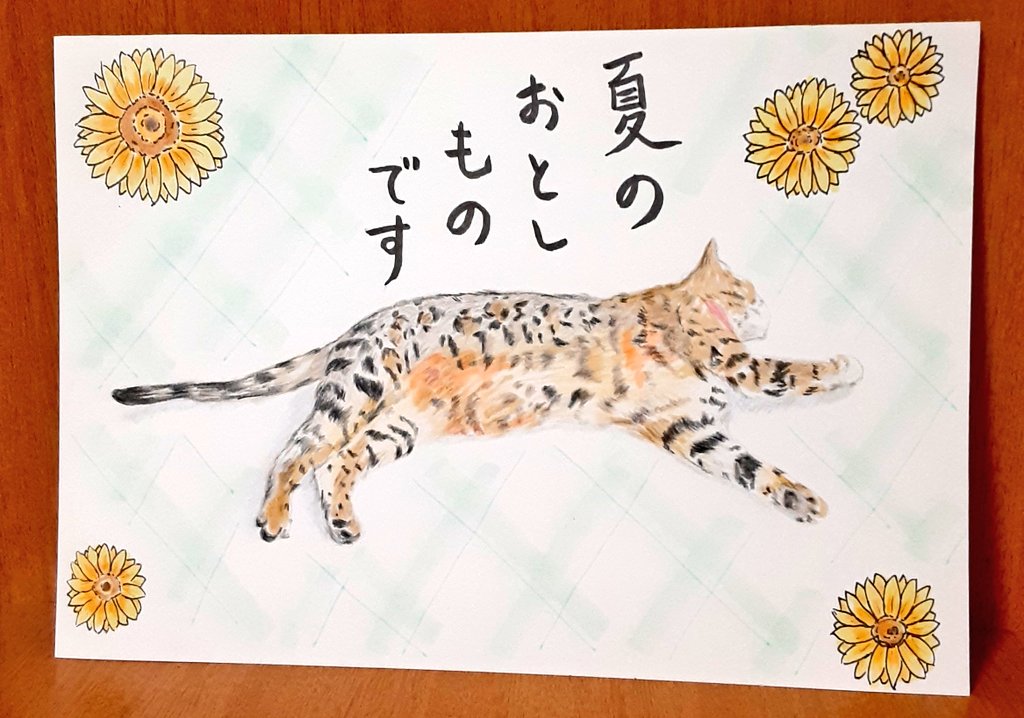 夏の
おとし
もの
です